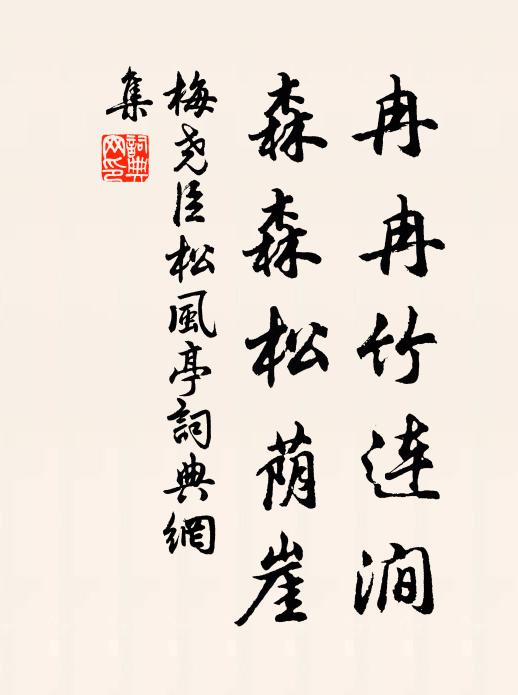 冉冉竹连涧
森森松荫崖
梅尧臣松風亭詞典網
集
詞典
网印